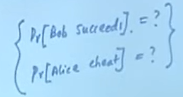 Pr[Bob succeeds] = ?
Pr[Alice cheat] = ?